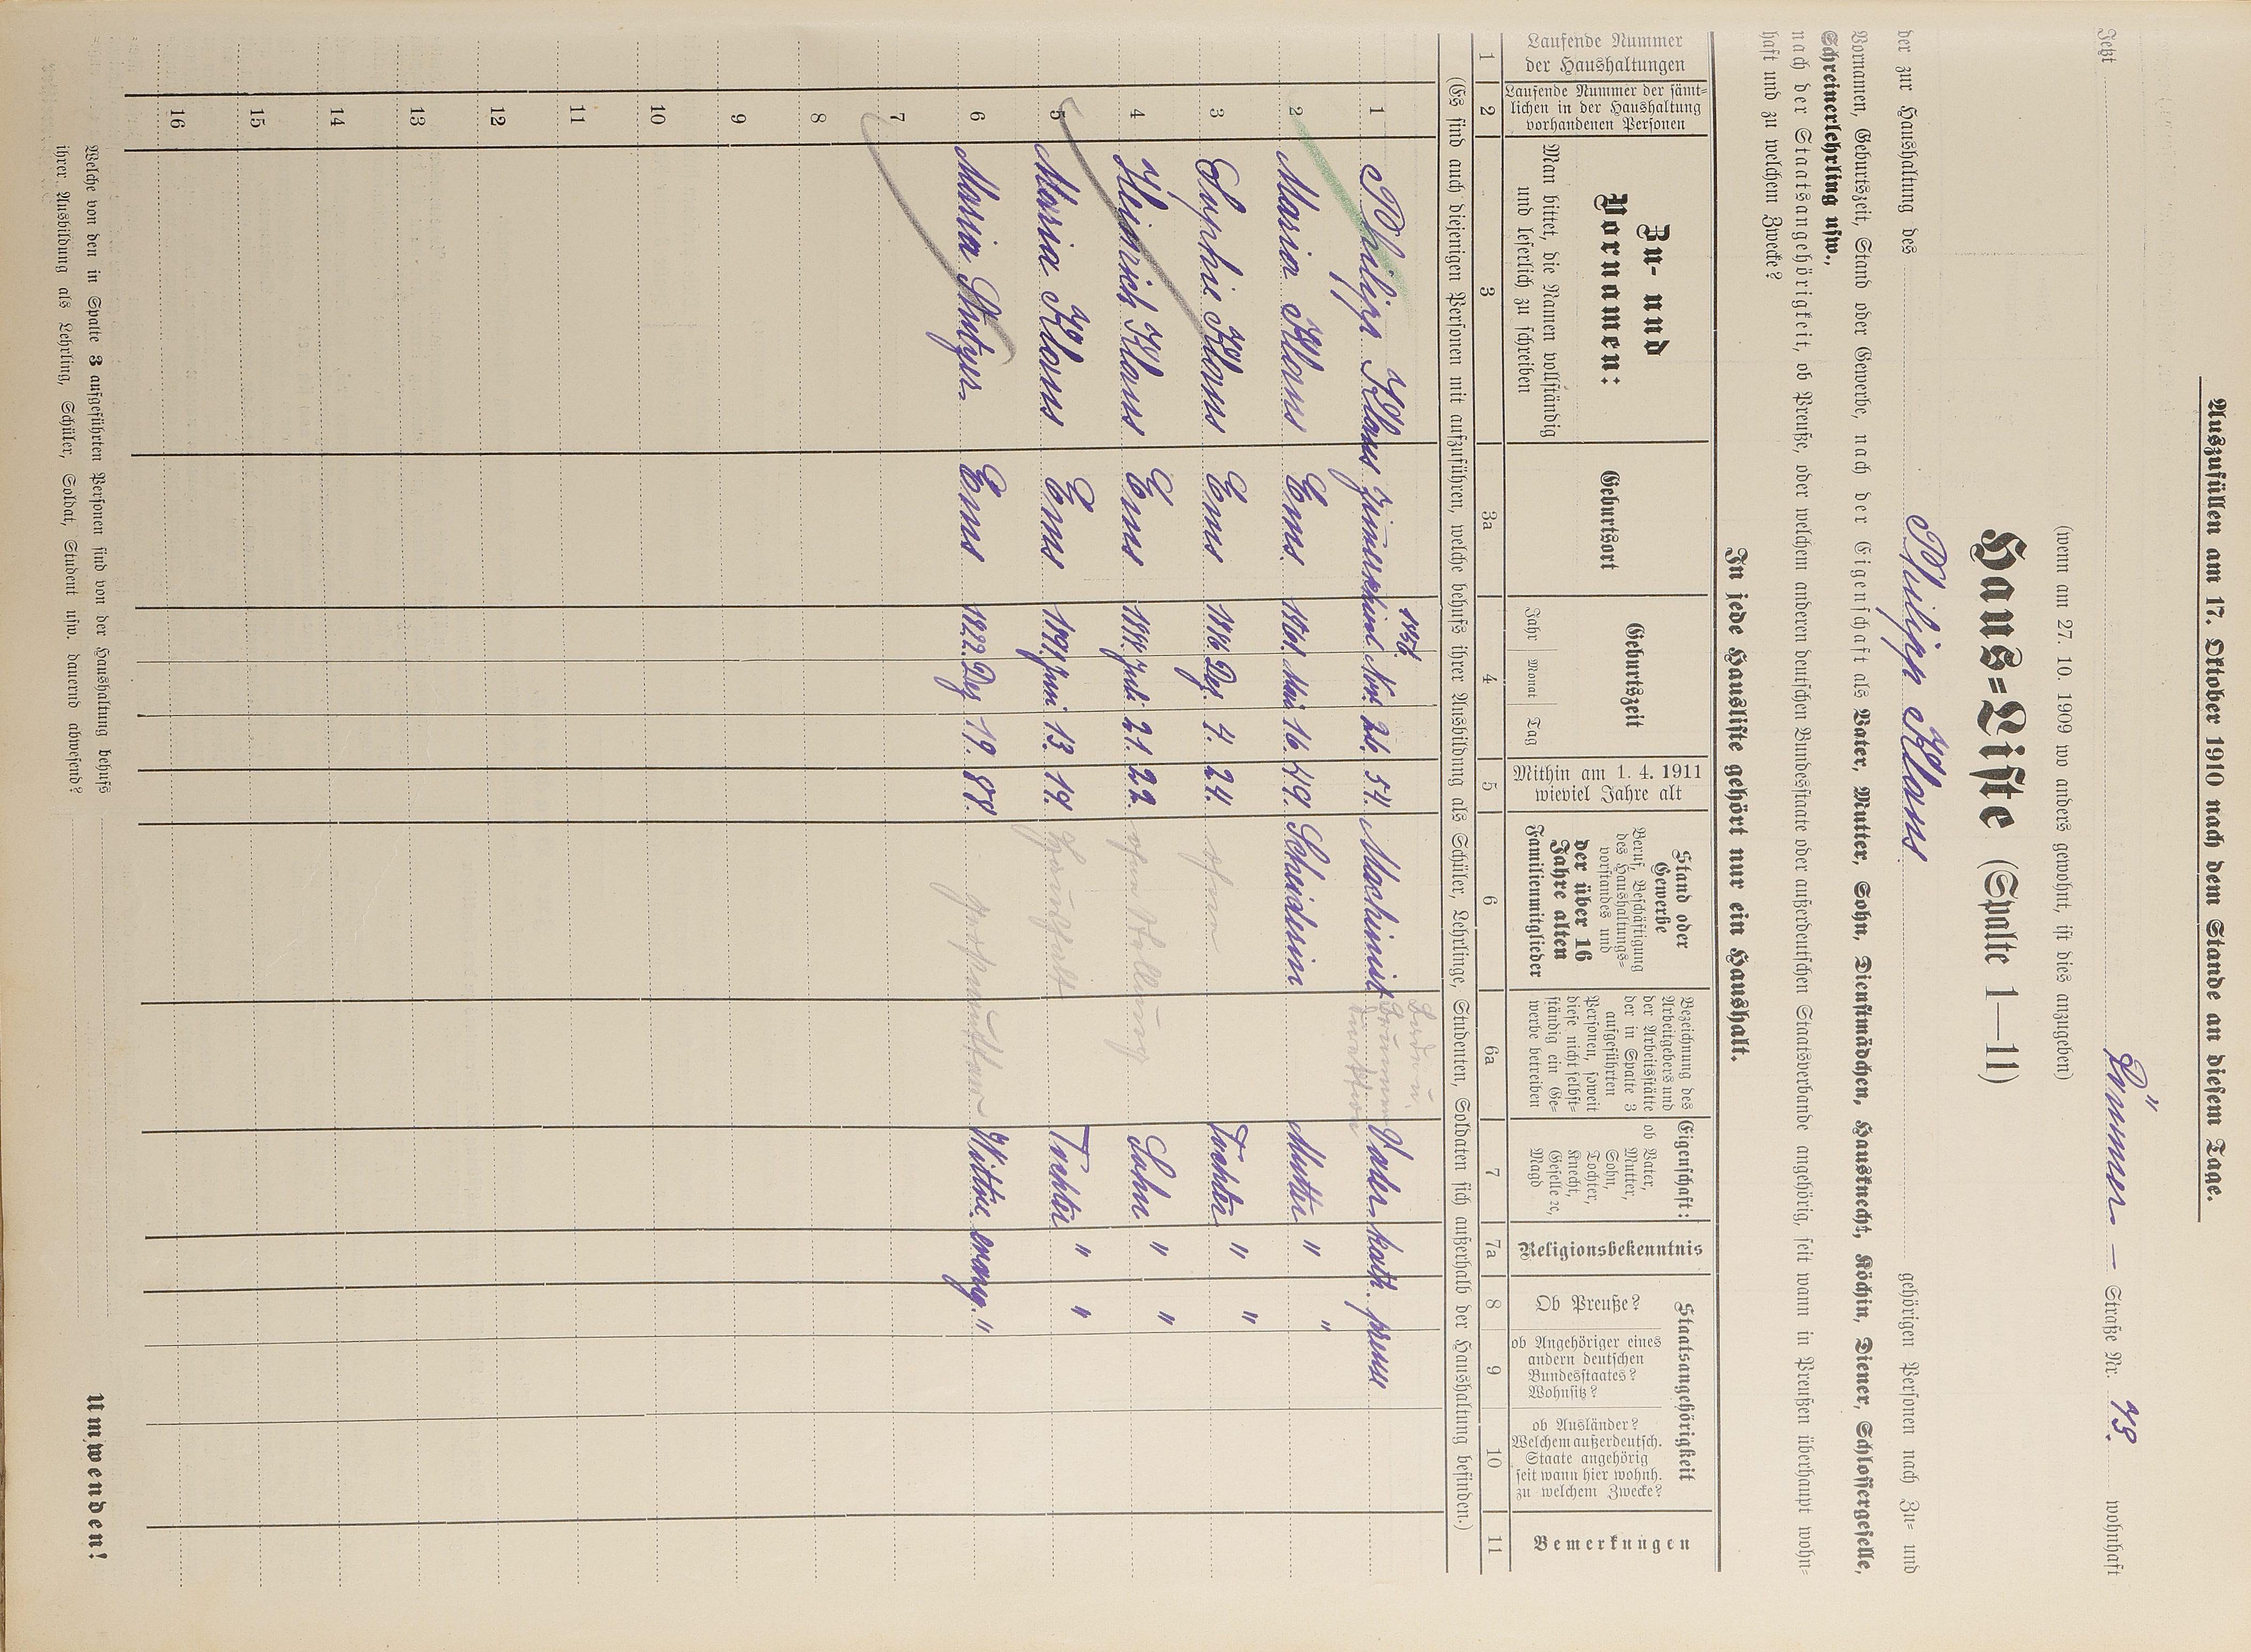 Auszufüllen am 17. Oktober 1910 nach dem Stande an diesem Tage.
Jetzt Römer – Straße Nr. 73. wohnhaft
(wenn am 27. 10. 1909 wo anders gewohnt, ist dies anzugeben)
Haus=Liste (Spalte 1—11)
der zur Haushaltung des Philipp Klaus gehörigen Personen nach Zu= und
Vornamen, Geburtszeit, Stand oder Gewerbe, nach der Eigenschaft als Vater, Mutter, Sohn, Dienstmädchen, Hausknecht, Köchin, Diener, Schlossergeselle,
Schreinerlehrling usw.,
nach der Staatsangehörigkeit, ob Preuße, oder welchem anderen deutschen Bundesstaate oder außerdeutschen Staatsverbande angehörig, seit wann in Preußen überhaupt wohn=
haft und zu welchen Zwecke?
In jede Hausliste gehört nur ein Haushalt.
Laufende Nummer
der Haushaltungen
Laufende Nummer der sämt=
lichen in der Haushaltung
vorhandenen Personen
Zu- und
Vornamen:
Man bittet, die Namen vollständig
und leserlich zu schreiben
Geburtsort
Geburtszeit
Jahr Monat Tag
Mithin am 1. 4. 1911
wieviel Jahre alt
Stand oder
Gewerbe
Beruf, Beschäftigung
des Haushaltungs=
vorstandes und
der über 16
Jahre alten
Familienmitglieder
Bezeichnung des
Arbeitgebers und
der Arbeitsstätte
der in Spalte 3
aufgeführten
Personen, soweit
diese nicht selbst=
ständig ein Ge=
werbe betreiben
Eigenschaft:
ob Vater,
Mutter,
Sohn,
Tochter,
Knecht,
Geselle ꝛc,
Magd
Religionsbekenntnis
Staatsangehörigkeit
Ob Preuße?
ob Angehöriger eines
andern deutschen
Bundesstaates?
Wohnsitz?
ob Ausländer?
Welchem außerdeutsch.
Staate angehörig
seit wann hier wohnh.
zu welchem Zwecke?
Bemerkungen
1 2 3 3a 4 5 6 6a 7 7a 8 9 10 11
(Es sind auch diejenigen Personen mit aufzuführen, welche behufs ihrer Ausbildung als Schüler, Lehrlinge, Studenten, Soldaten sich außerhalb der Haushaltung befinden.)
1 Philipp Klaus 1856. Nov. 26. 54. Machinist Vater kath. preus
2 Maria Klaus Ems. 1861. Mai 16. 49. Schneiderin Mutter " "
3 Sophie Klaus Ems 1886. Dez. 4. 24. ohne Tochter " "
4 Heinrich Klaus Ems 1888. Juli 21. 22. ohne Stellung Sohn " "
5 Maria Klaus Ems 1891. Juni 13. 19. Tochter " "
6 Maria Ems 1822. Dez 19. 88. Großmutter Witwe evang. "
7
8
9
10
11
12
13
14
15
16
Welche von den in Spalte 3 aufgeführten Personen sind von der Haushaltung behufs
ihrer Ausbildung als Lehrling, Schüler, Soldat, Student usw. dauernd abwesend?
Umwenden!